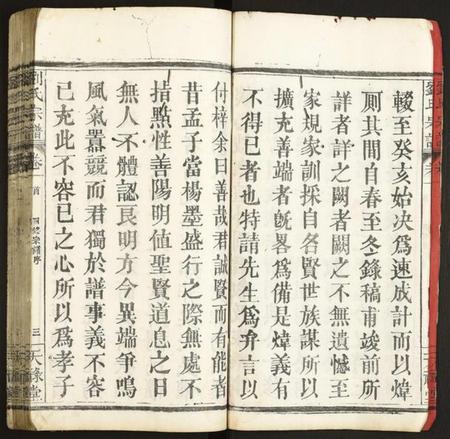 輟至癸亥始決爲速成計而以煒
厠其間自春至冬錄稿甫竣前所
詳者詳之闕者闕之不無遺憾至
家規家訓採自名賢世族謀所以
擴充善端者旣畧爲備是煒義有
不得已者也特請先生爲弁言以
付梓余曰善哉君誠賢而有能者
昔孟子當楊墨盛行之際無處不
指點性善陽明値聖賢道息之日
無人不體認良明方今異端爭鳴
風氣囂競而君獨於譜事義不容
已充此不容已之心所以爲孝子
劉氏宗譜 卷首 四修宗譜序 三 天祿堂